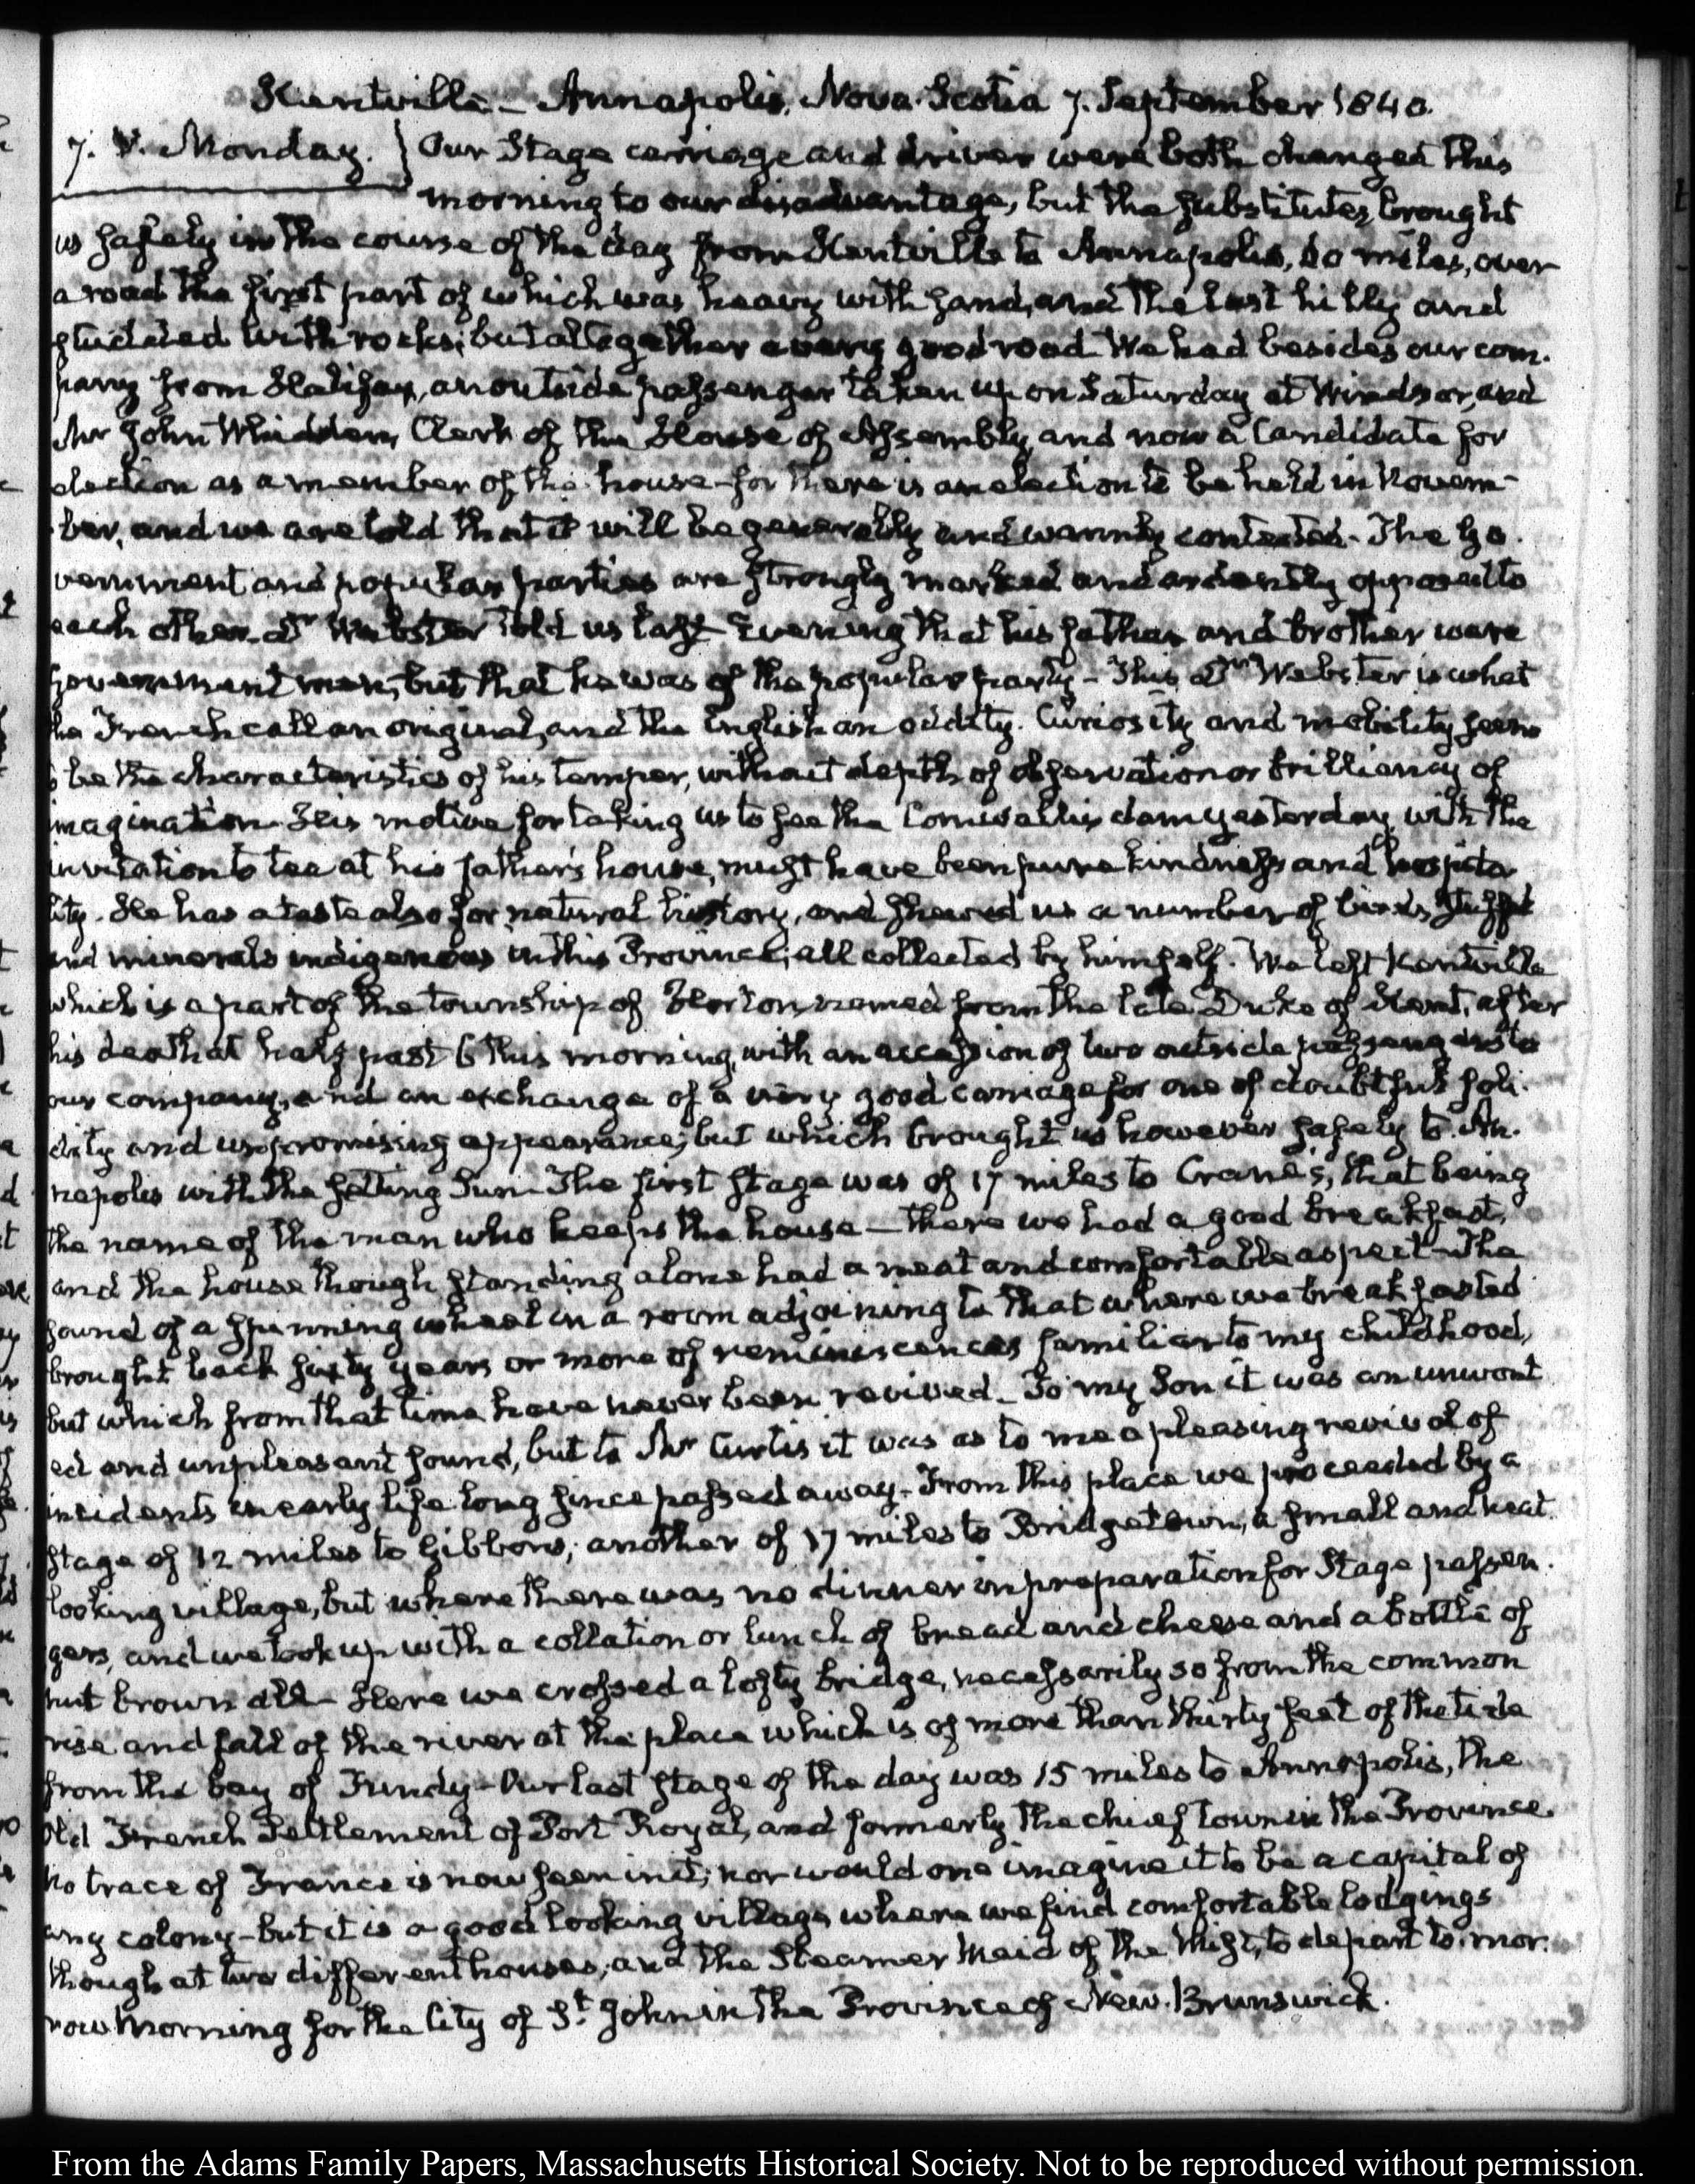 Kentville – Annapolis, Nova-Scotia 7. September 1840.
7. V. Monday. } Our Stage carriage and driver were both changed this
morning to our disadvantage, but the substitutes, brought
us safely in the course of the day from Kentville to Annapolis, 60 miles, over
a road the first part of which was heavy with sand, and the last hilly and
studded with rocks; but altogether a very good road. We had besides our com-
pany from Halifax, an outside passenger taken up on Saturday at Windsor, and
Mr John Whidden, Clerk of the House of Assembly, and now a Candidate for
election as a member of the house–for there is an election to be held in Novem-
ber, and we are told that it will be generally and warmly contested– The Go-
vernment and popular parties are strongly marked and ardently opposed to
each other. Dr Webster told us last Evening that his father and brother were
Government men, but that he was of the popular party– This Dr Webster is what
the French call an original, and the English an oddity. Curiosity and mobility seem
to be the characteristics of his temper, without depth of observation or brilliancy of
imagination– His motive for taking us to see the Cornwallis dam yesterday, with the
invitation to tea at his father's house, must have been pure kindness and hospita-
lity. He has a taste also for natural history, and shewed us a number of birds, stuff'd
and minerals indigenous in this Province, all collected by himself. We left Kentville
which is a part of the township of Horton, named from the late Duke of Kent, after
his death at half past 6 this morning, with an accession of two outside passengers to
our company, and an exchange of a very good carriage for one of doubtful soli-
dity and unpromising appearance; but which brought us however safely to An-
napolis with the setting Sun– The first stage was of 17 miles to Crane's, that being
the name of the man who keeps the house – there we had a good breakfast,
and the house though standing alone had a neat and comfortable aspect–The
sound of a spinning wheel in a room adjoining to that where we breakfasted
brought back sixty years or more of reminiscences familiar to my childhood,
but which from that time have never been revived– To my Son it was an unwont-
ed and unpleasant sound, but to Mr Curtis it was as to me a pleasing revival of
incidents in early life long since passed away– From this place we proceeded by a
stage of 12 miles to Gibbons; another of 17 miles to Bridgetown, a small and neat
looking village, but where there was no dinner in preparation for Stage passen-
gers, and we took up with a collation or lunch of bread and cheese and a bottle of
nut brown ale– Here we crossed a lofty bridge, necessarily so from the common
rise and fall of the river at the place which is of more than thirty feet of the tide
from the bay of Fundy–Our last stage of the day was 15 miles to Annapolis, the
Old French Settlement of Port Royal, and formerly the chief town in the Province
No trace of France is now seen in it; nor would one imagine it to be a capital of
any colony–but it is a good looking village where we find comfortable lodgings
though at two different houses, and the Steamer Maid of the Mist, to depart to-mor-
row Morning for the City of St John in the Province of New-Brunswick.
From the Adams Family Papers, Massachusetts Historical Society. Not to be reproduced without permission.